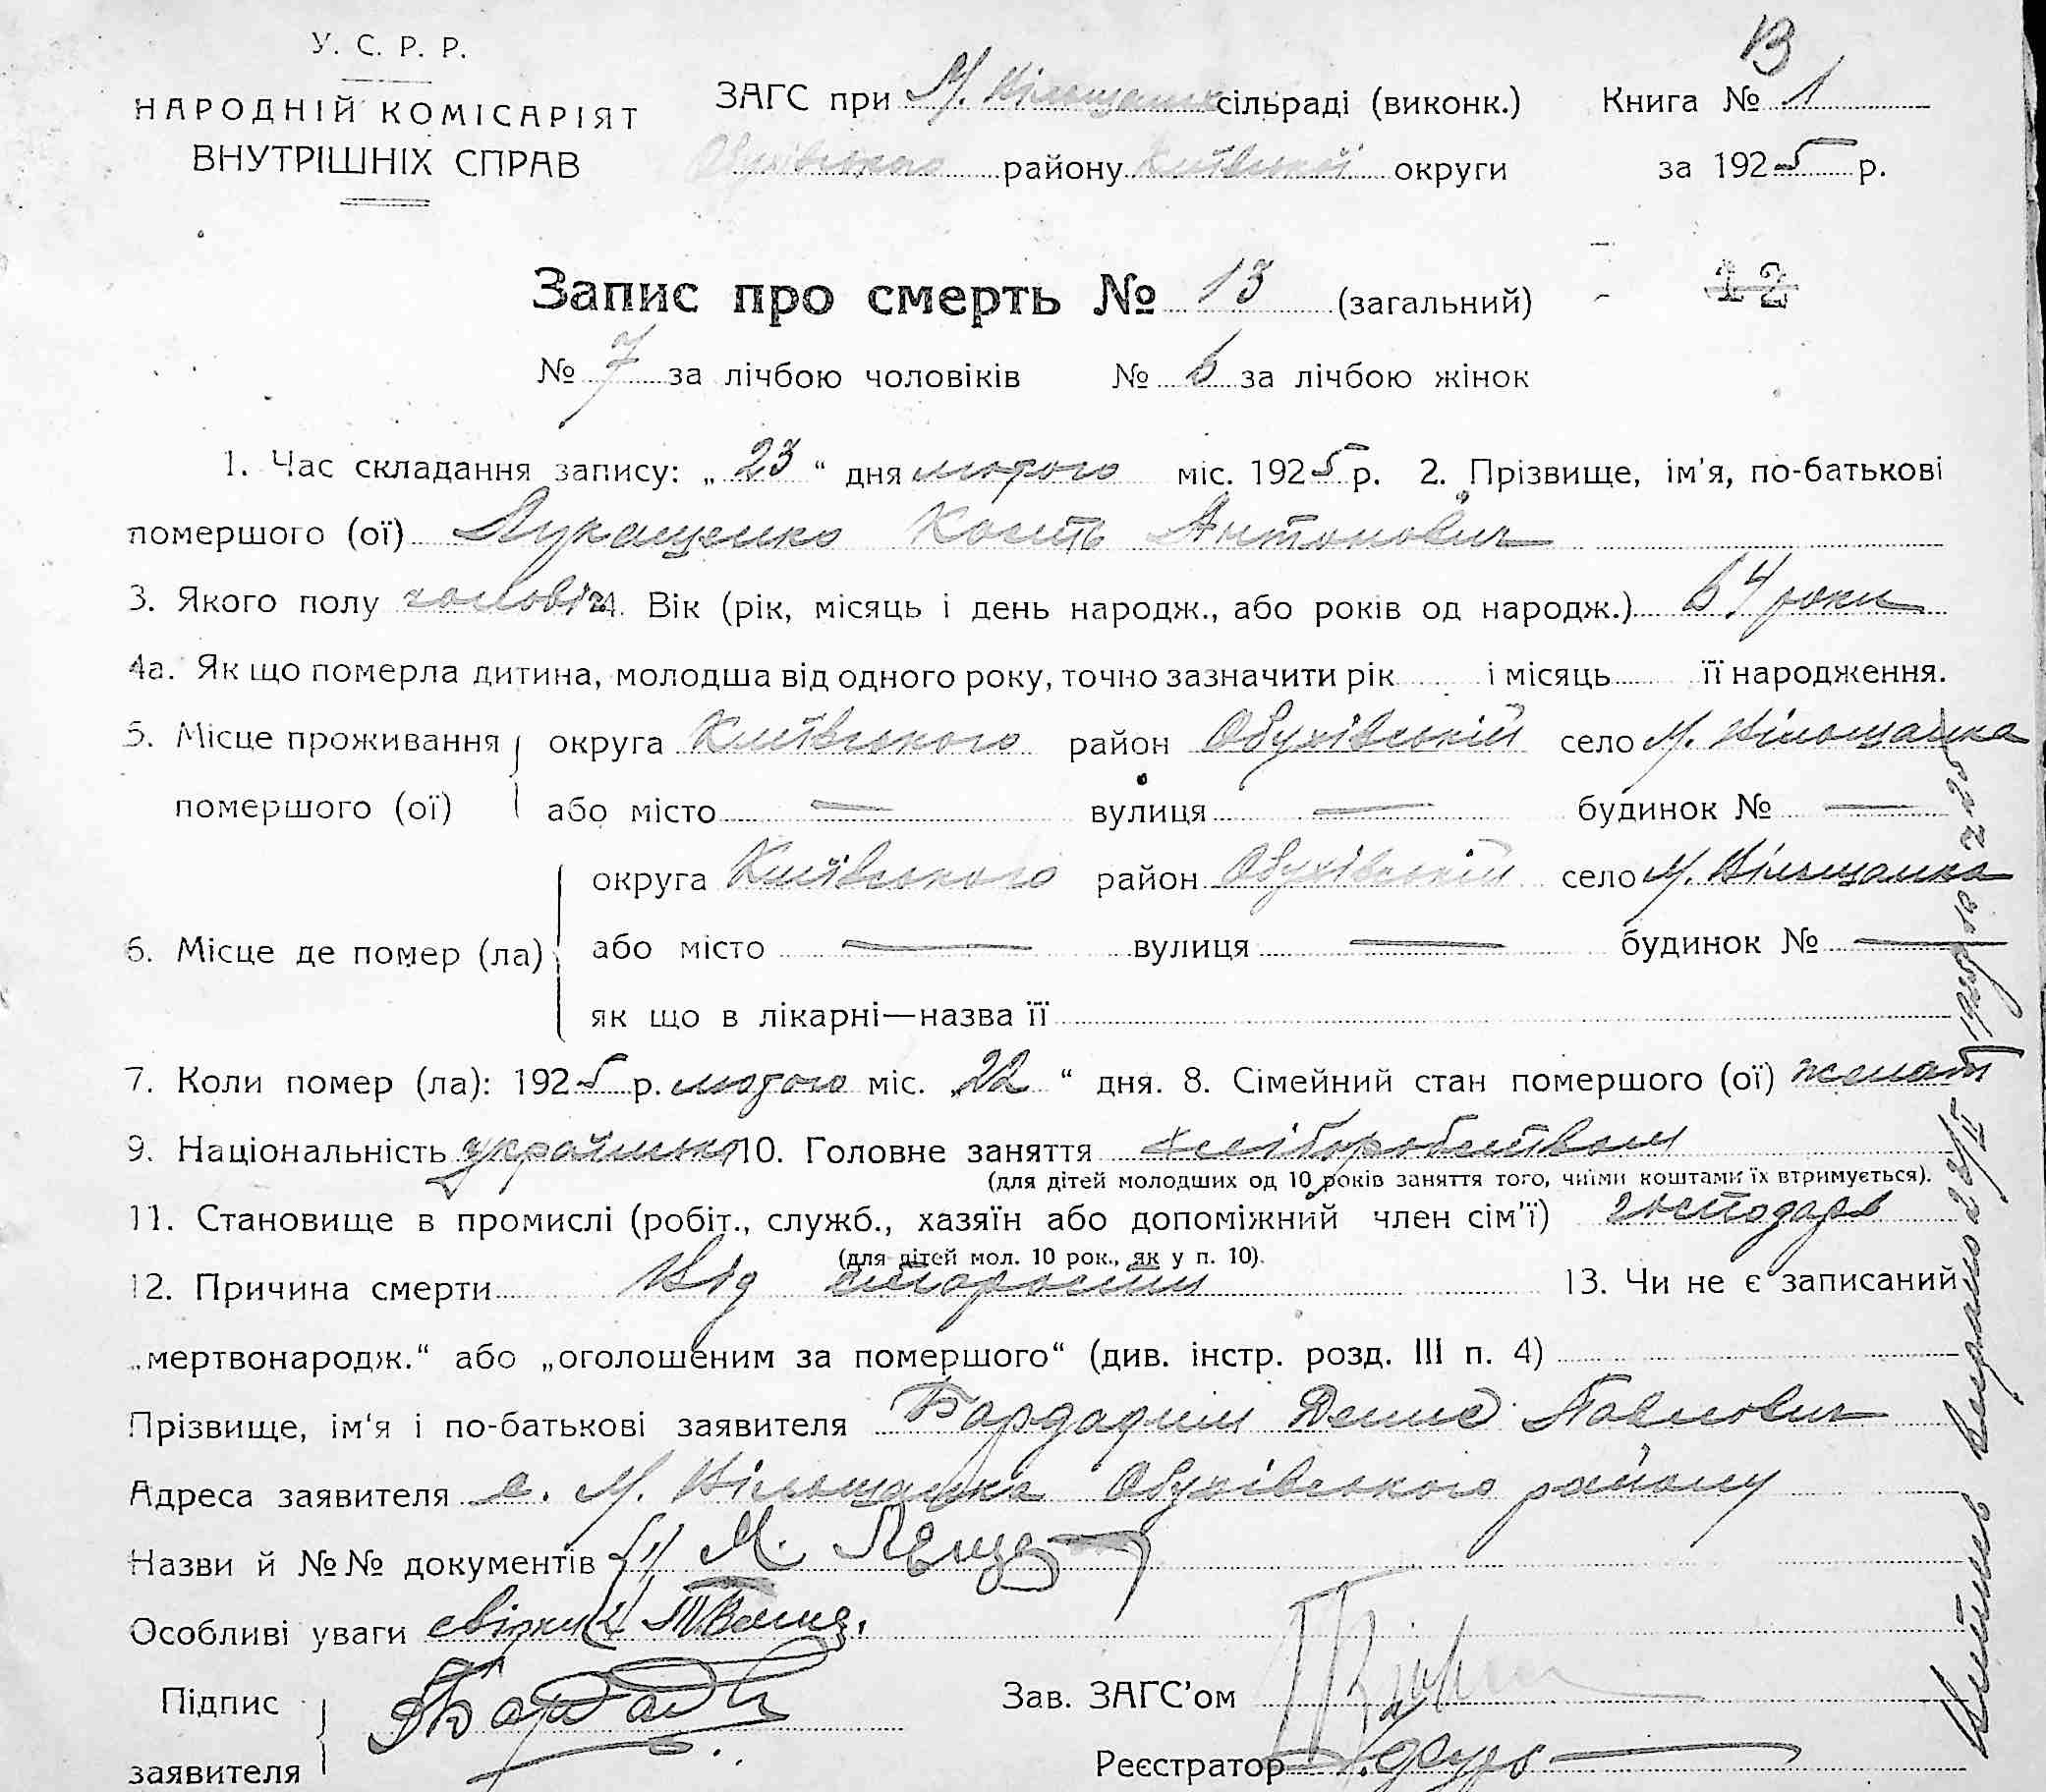 У. С. Р. Р.
НАРОДНІЙ КОМІСАРІЯТ
ВНУТРІШНІХ СПРАВ
13
ЗАГС при М. Вільшанск сільраді (виконк.) Книга № 1
Обухівського району Київської округи за 1925 р.
Запис про смерть № 13 (загальний) 12
№ 7 за лічбою чоловіків № 6 за лічбою жінок
1. Час складання запису: „23“ дня лютого міс. 1925 р. 2. Прізвище, ім'я, по-батькові
помершого (ої) Лукащенко Кость Антонович
3. Якого полу чоловіч 4. Вік (рік, місяць і день народж., або років од народж.) 64 роки
4а. Як що померла дитина, молодша від одного року, точно зазначити рік і місяць її народження.
5. Місце проживання помершого (ої) округа Київського район Обухівський село М. Вільшанка
або місто — вулиця — будинок № —
6. Місце де помер (ла) округа Київського район Обухівський село М. Вільшанка
або місто — вулиця — будинок № —
як що в лікарні—назва її
7. Коли помер (ла): 1925 р. лютого міс. „22“ дня. 8. Сімейний стан помершого (ої) женат
9. Національність 10. Головне заняття хліборобством
(для дітей молодших од 10 років заняття того, чиїми коштами їх втримується).
11. Становище в промислі (робіт., служб., хазяїн або допоміжний член сім'ї) господарь
(для дітей мол. 10 рок., як у п. 10).
12. Причина смерти Від старости 13. Чи не є записаний
„мертвонародж.“ або „оголошеним за помершого“ (див. інстр. розд. III п. 4)
Прізвище, ім'я і по-батькові заявителя Бардадим Денис Павлович
Адреса заявителя с. М. Вільшанка Обухівського району
Назви й №№ документів 1) Я.
Особливі уваги свідки 2)
Підпис заявителя
Зав. ЗАГС'ом
Реєстратор